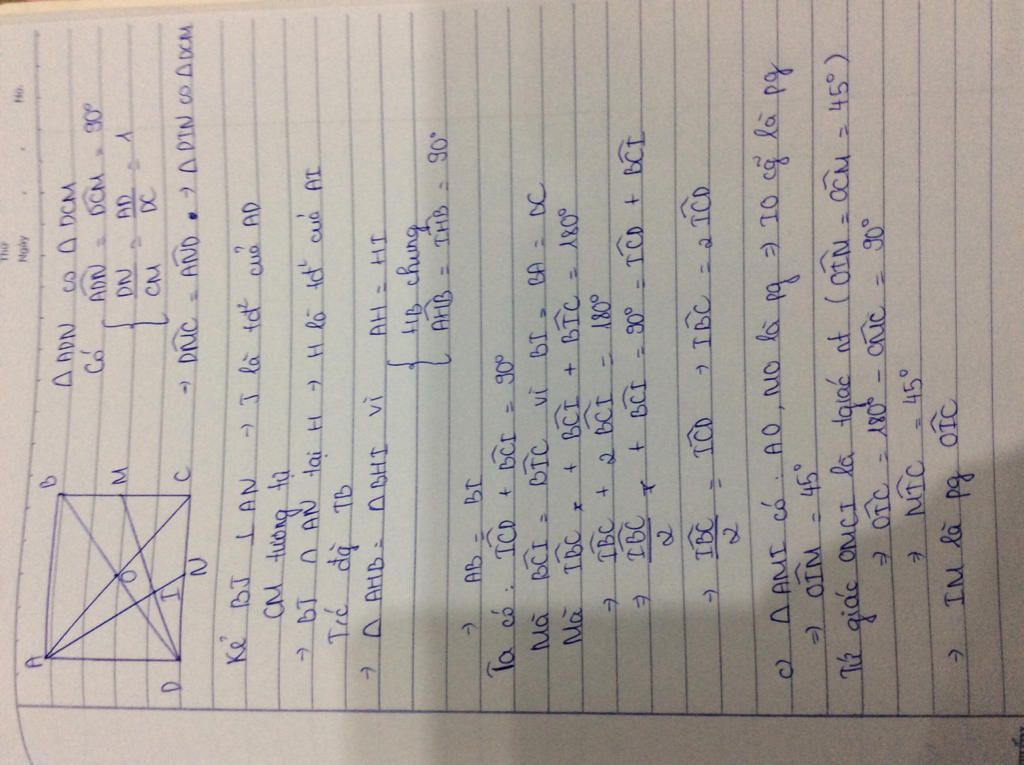 Thứ
Ngày
No.
A
B
M
O
C
I
N
D
△ADN ∽ △DCM
Có { ADN^ = DCM^ = 90°
DN/CM = AD/DC = 1
→ DMC^ = AND^ → △DIN ∽ △DCM
Kẻ BJ ⊥ AN → J là tđ² của AD
CM tương tự
→ BJ ∩ AN tại H → H là tđ² của AI
T/c đg TB
→ △AHB = △BHI vì { AH = HI
HB chung
AHB^ = IHB^ = 90°
→ AB = BI
Ta có: ICD^ + BCI^ = 90°
Mà BCI^ = BIC^ vì BI = BA = DC
Mà IBC^ + BCI^ + BIC^ = 180°
→ IBC^ + 2BCI^ = 180°
⇒ IBC^/2 + BCI^ = 90° = ICD^ + BCI^
→ IBC^/2 = ICD^ → IBC^ = 2ICD^
c) △ANI có: AO, NO là pg ⇒ IO cg̃ là pg
⇒ OIN^ = 45°
Tứ giác ONCI là tgiác nt (OIN^ = OCM^ = 45°)
⇒ OIC^ = 180° - ONC^ = 90°
⇒ NIC^ = 45°
→ IM là pg OIC^